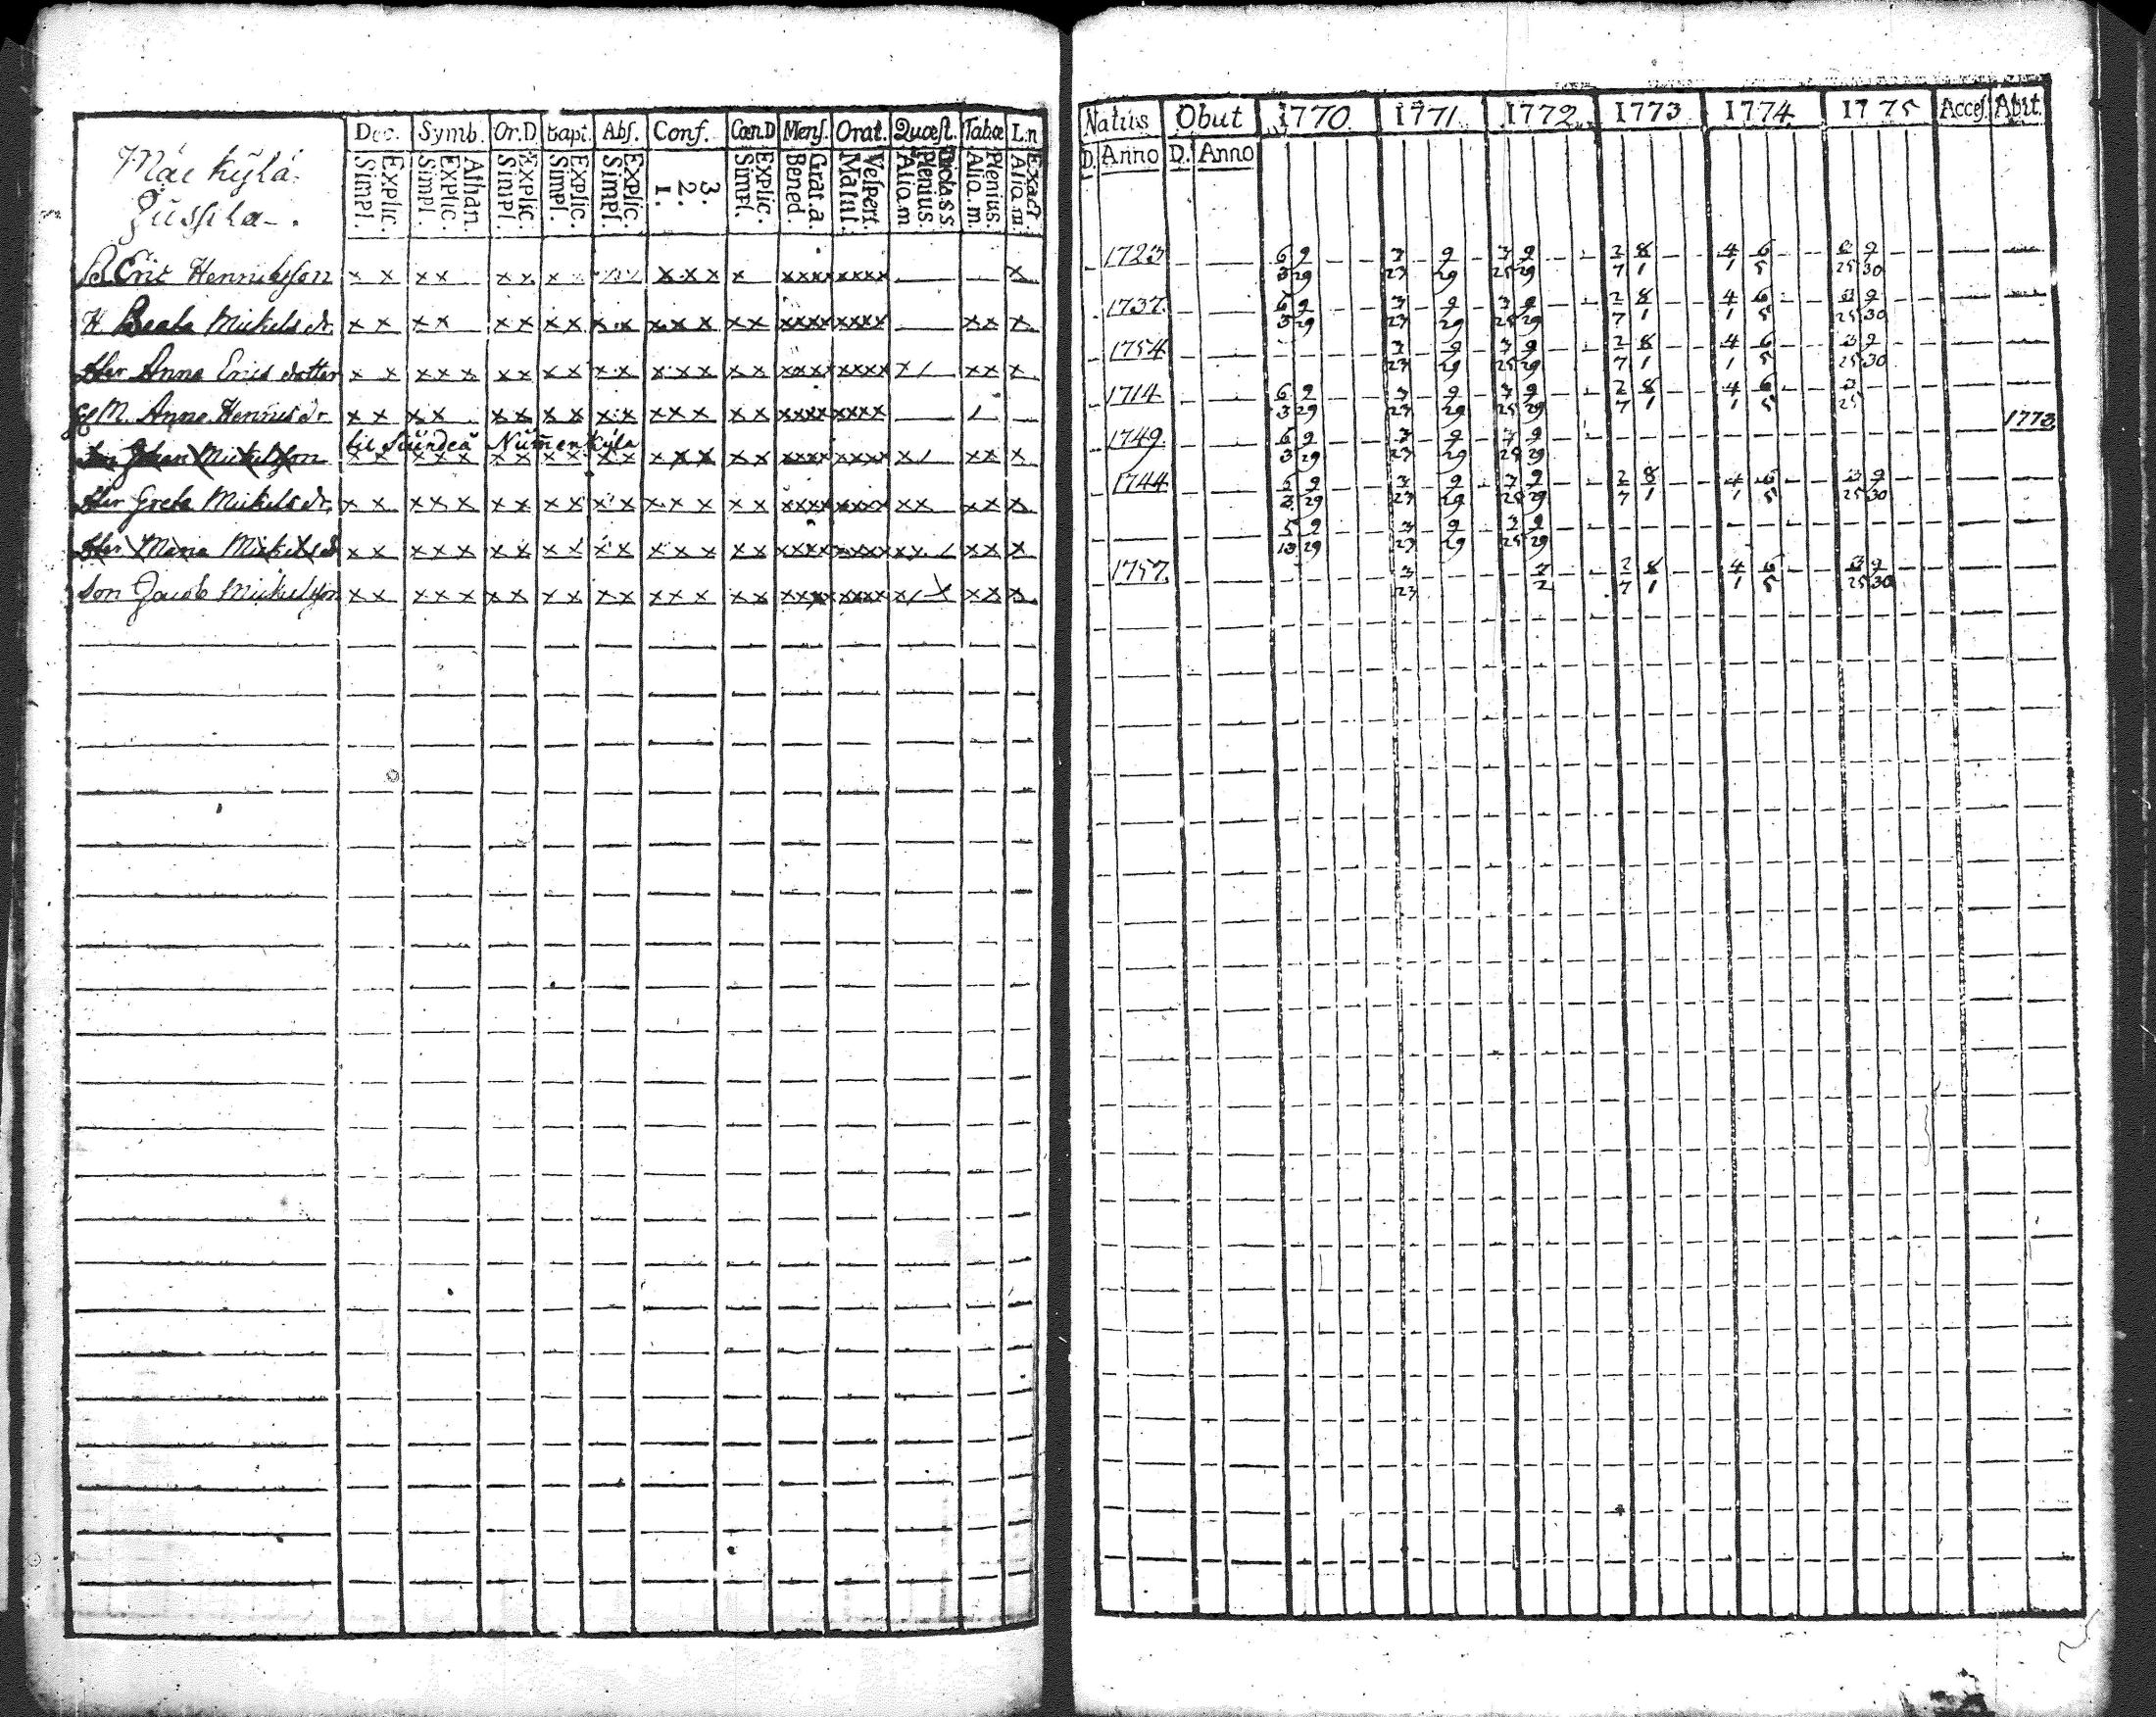 Dec. Symb. Or.D Bapt. Abs. Conf. Cœn.D Mens. Orat. Quæst. Tabæ L.n
Simpl. Explic. Simpl. Explic. Athan. Simpl. Explic. Simpl. Explic. Simpl. Explic. 1. 2. 3. Simpl. Explic. Bened. Grat.a. Matut. Vespert. Aliq.m Plenius. Alia.m. Plenius. Aliq.m. Exact
Mäekÿlä
Jussila
B. Eric Henriksson x x x x x x x x x x x x x x x x x x x x x
H Beata Mickelsdr. x x x x x x x x x x x x x x x x x x x x x x x x x x
Dtter Anna Erics dotter x x x x x x x x x x x x x x x x x x x x x x x x x / x x x
M. Anna Henricsdr x x x x x x x x x x x x x x x x x x x x x x x /
til Sündeå Nümenkÿla
Son Johan Mickelsson x x x x x x x x x x x x x x x x x x x x x x x x x / x x x
Dtter Greta Mickelsdr. x x x x x x x x x x x x x x x x x x x x x x x x x x x x x
Dtter Maria Mickelsd x x x x x x x x x x x x x x x x x x x x x x x x x x / x x x
Son Jacob Mickelsson x x x x x x x x x x x x x x x x x x x x x x x x x / x x x x
Natus Obiit 1770. 1771 1772 1773 1774 1775 Acces. Abiit.
D. Anno D. Anno
1723 6/3 9/29 3/23 9/29 3/25 9/29 2/7 8/1 4/1 6/5 3/25 9/30
1737. 6/3 9/29 3/23 9/29 3/25 9/29 2/7 8/1 4/1 6/5 3/25 9/30
1754 3/23 9/29 3/25 9/29 2/7 8/1 4/1 6/5 3/25 9/30
1714 6/3 9/29 3/23 9/29 3/25 9/29 2/7 8/1 4/1 6/5 3/25
1749. 6/3 9/29 3/23 9/29 3/25 9/29 1773
1744 6/3 9/29 3/23 9/29 3/25 9/29 2/7 8/1 4/1 6/5 3/25 9/30
5/13 9/29 3/23 9/29 3/25 9/29
1757. 3/23 7/2 2/7 8/1 4/1 6/5 3/25 9/30